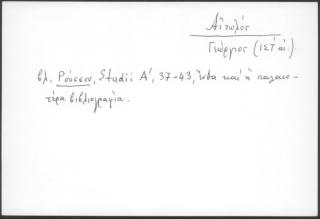 Αἰτωλός
Γεώργιος (ΙΣΤ΄ αἰ.)
βλ. Ρούσσου, Studii Α΄, 37-43, ἔνθα καὶ ἡ παλαιο-
τέρα βιβλιογραφία.